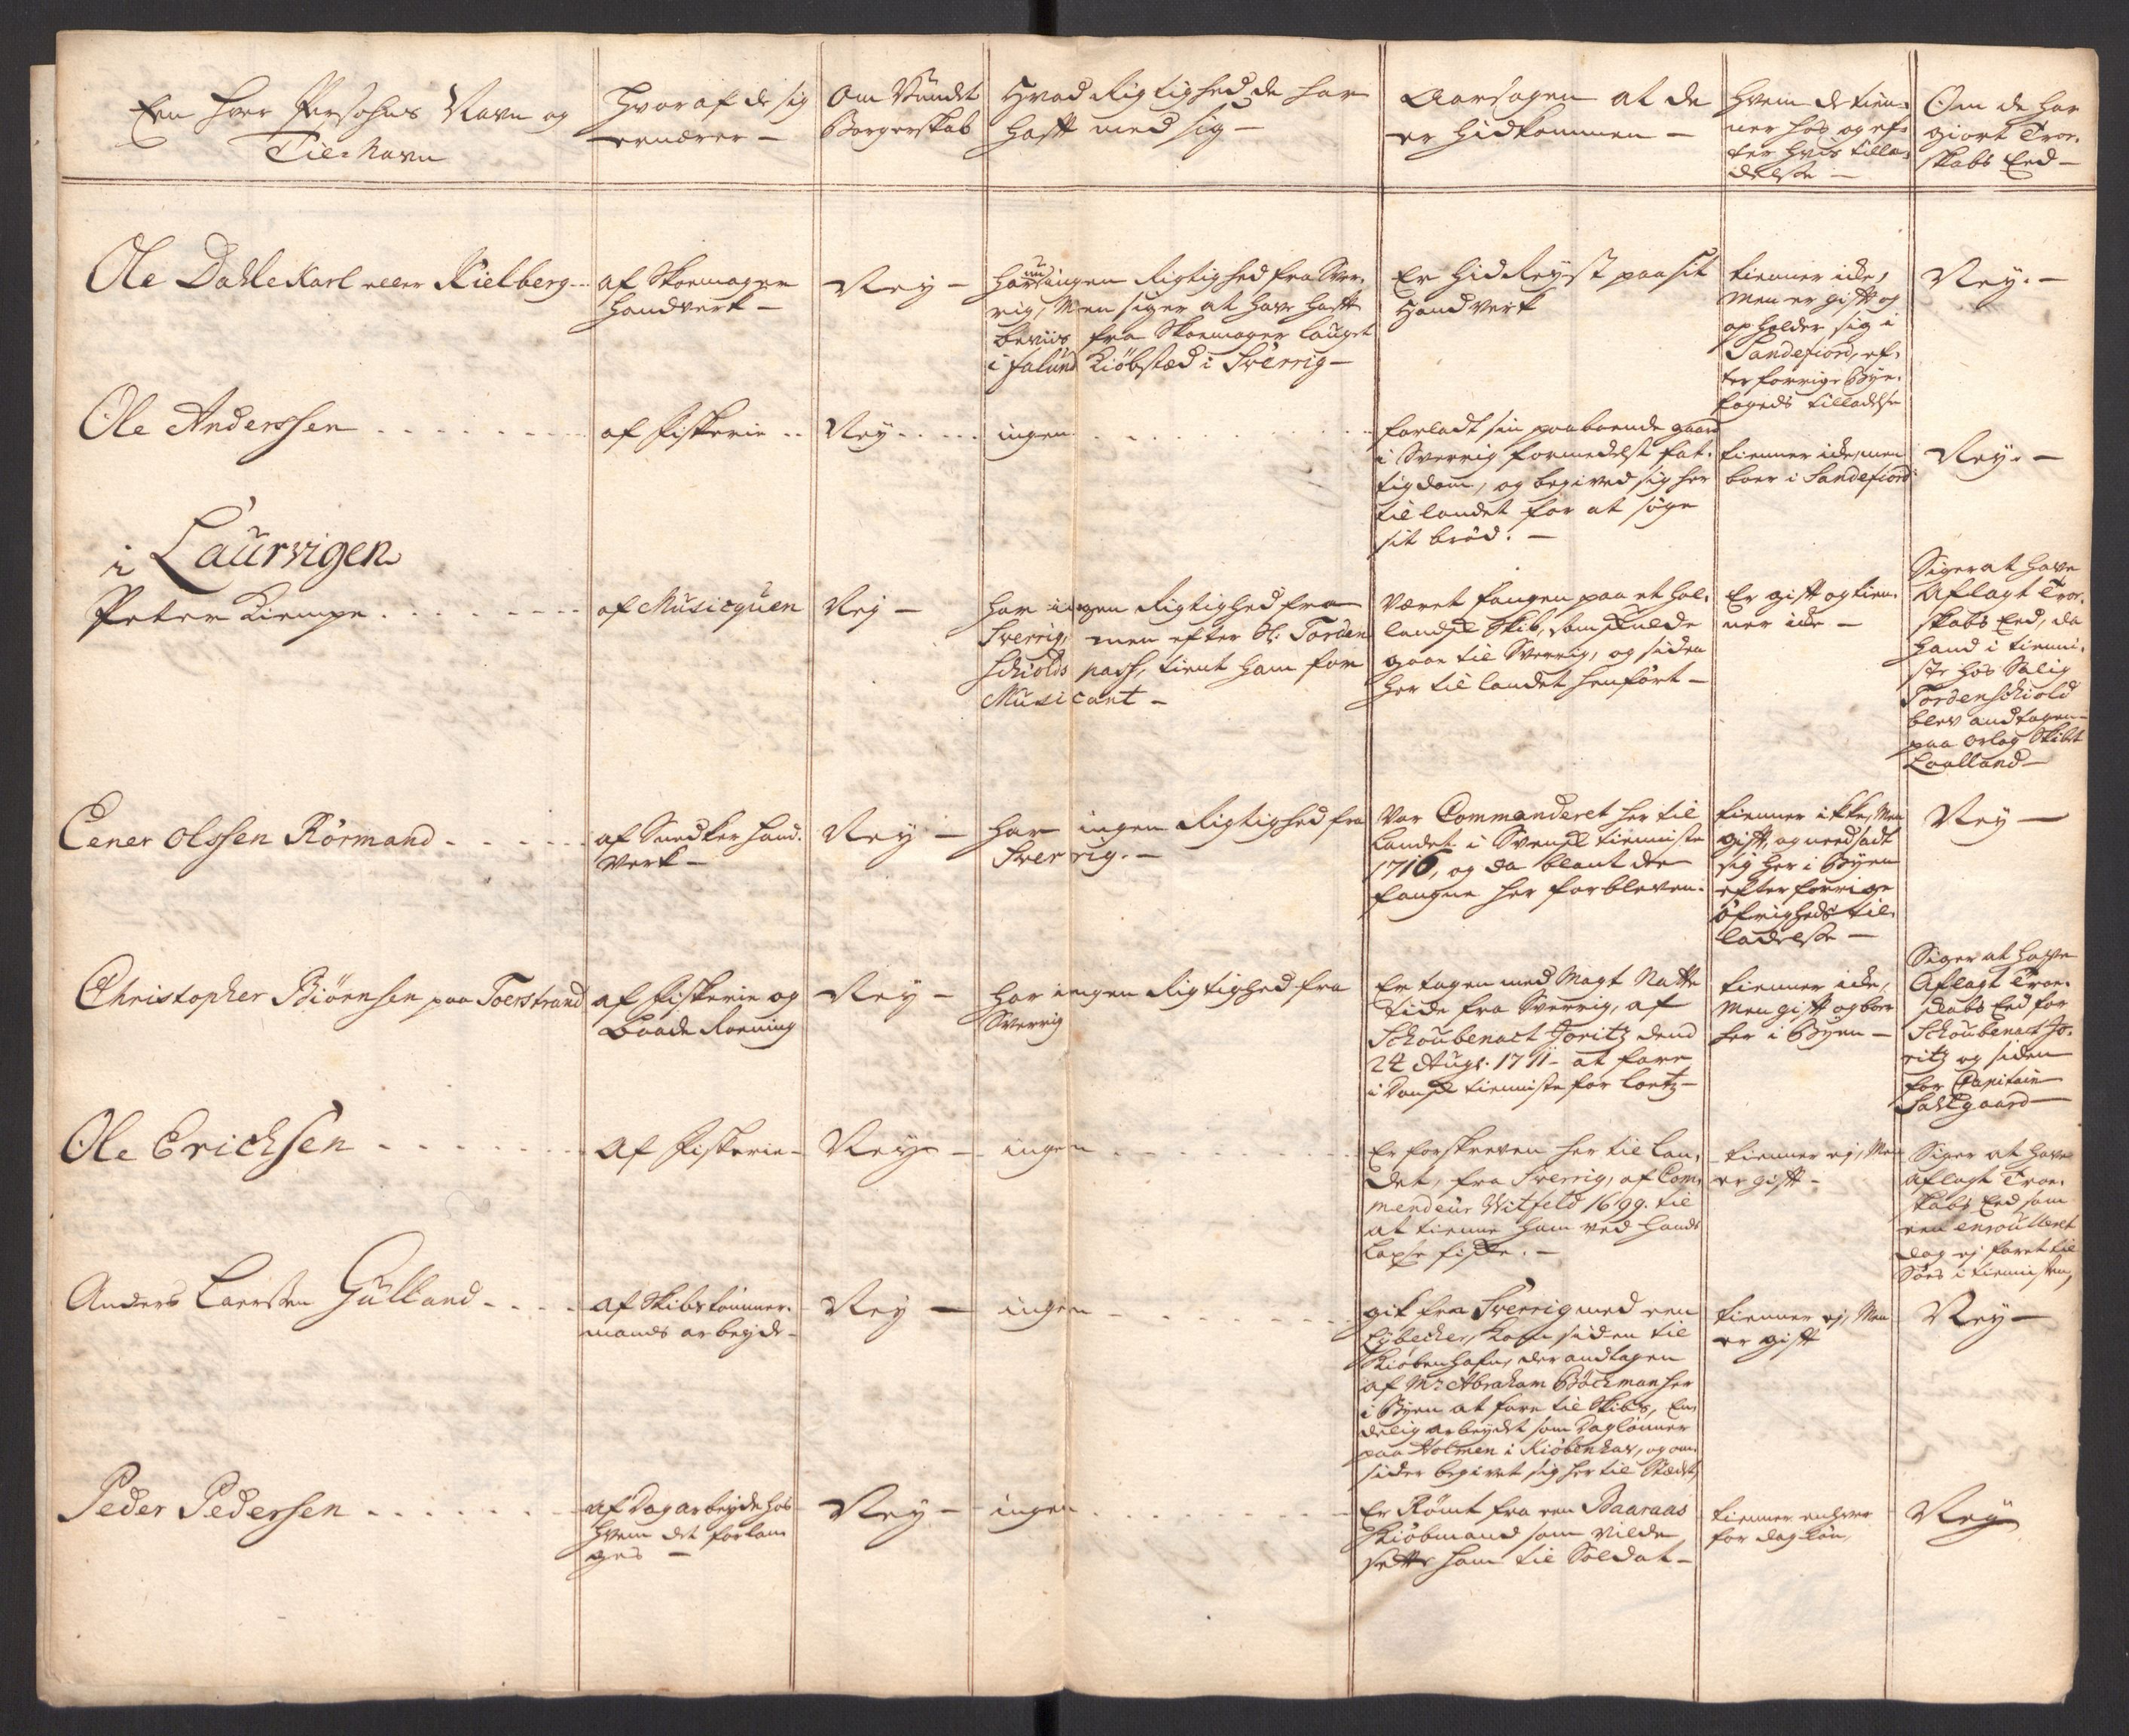 Een hver Persohns Navn og
Til-Navn
Hvoraf de sig
ernærer —
Om Vundet
Borgerskab
Hvad Rigtighed de har
haft med sig —
Aarsagen at de
er hidkommen —
Hvem de tien-
ner hos og ef-
ter hvis tilla-
delsse —
Om de har
giort Troe-
skabs Eed —
Ole Dahlekarl eller Kielberg
af Skoemager
handverk —
Ney —
har nu ingen Rigtighed fra Sver-
rig, Men siger at have haft
beviis fra Skoemager lauget
i Falund Kiöbstæd i Sverrig —
Er hid Reyst paa sit
Handverk
tienner icke,
Men er gift og
opholder sig i
Sandefiord, ef-
ter forrige Bye-
fogeds tilladelse
Ney. —
Ole Anderssen . . . . . . .
af fiskerie ..
Ney . . . .
ingen . . . . . . .
forladt sin paaboende gaard
i Sverrig formedelst fat-
tigdom, og begived sig her
til landet for at søge
sit brød. —
tienner icke, men
boer i Sandefiord
Ney. —
i Laurvigen
Peter Kiempe . . . . . . .
af Musicquen
Nej —
har ingen Rigtighed fra
Sverrig, men efter Sl: Torden
schiolds pass, tient ham for
Musicant —
Været fangen paa et hol-
landsk Skib, som skulde
gaae til Sverrig, og siden
her til landet henført —
Er gift og tien-
ner icke —
Siger at have
Aflagt Troe-
skabs Eed, da
hand i tienni-
ste hos Salig
Tordenschiold
blev andtagen
paa Orlog Skibet
Laalland —
Eener Olssen Rörmand . . . . .
af Snedker hand-
verk —
Ney —
har ingen Rigtighed fra
Sverrig. —
Var Commanderet her til
Landet i Svensk tienniste
1716, og da blant de
fangne her forbleven.
tienner ikke, Men
gift, og nedsadt
sig her i Byen
efter forrige
Öfrigheds til-
ladelsse —
Ney —
Christopher Biörnsen paa Toerstrand
af fiskerie og
Baade Roening
Ney —
har ingen Rigtighed fra
Sverrig
Er tagen med Magt Natte
tide fra Sverrig, af
Schoubenact Joritz dend
24 Augs. 1711 — at fare
i Dansk tienniste for Loetz —
tienner icke,
Men gift og boer
her i Byen —
Siger at hafve
Aflagt Troe-
skabs Eed for
Schoubenact Jo-
ritz og siden
for Capitain
Fahlgaard —
Ole Erichsen . . . . . . .
af fiskerie —
Ney —
ingen . . . . . . .
Er forskreven her til Lan-
det, fra Sverrig, af Com-
mendeur Witfeld 1699. til
at tienne ham ved hands
laxe fiske. —
tienner ej, Men
er gift —
Siger at have
aflagt Troe-
skabs Eed som
een enroulleret
dog ej faret til
Söes i tiennisten,
Anders Laerssen Gulland . . . .
af Skibstömmer-
mands arbeyde —
Ney —
ingen . . . . . . .
gik fra Sverrig med een
Lybecker, kom siden til
Kiöbenhafn, der andtagen
af Mr Abraham Böckman her
i Byen at fare til Skibs, En-
delig arbeydet som Daglönner
paa Holmen i Kiöbenhav, og om-
sider begivet sig her til Stædet,
tienner ej, Men
er gift
Ney —
Peder Pedersen . . . . . . .
af Dag arbeyde hos
hvem det forlan-
ges —
Ney —
ingen . . . . . . .
Er Römt fra een Baaraas
Kiöbmand som vilde
sætte ham til Soldat —
tienner enhver
for dag lön,
Ney